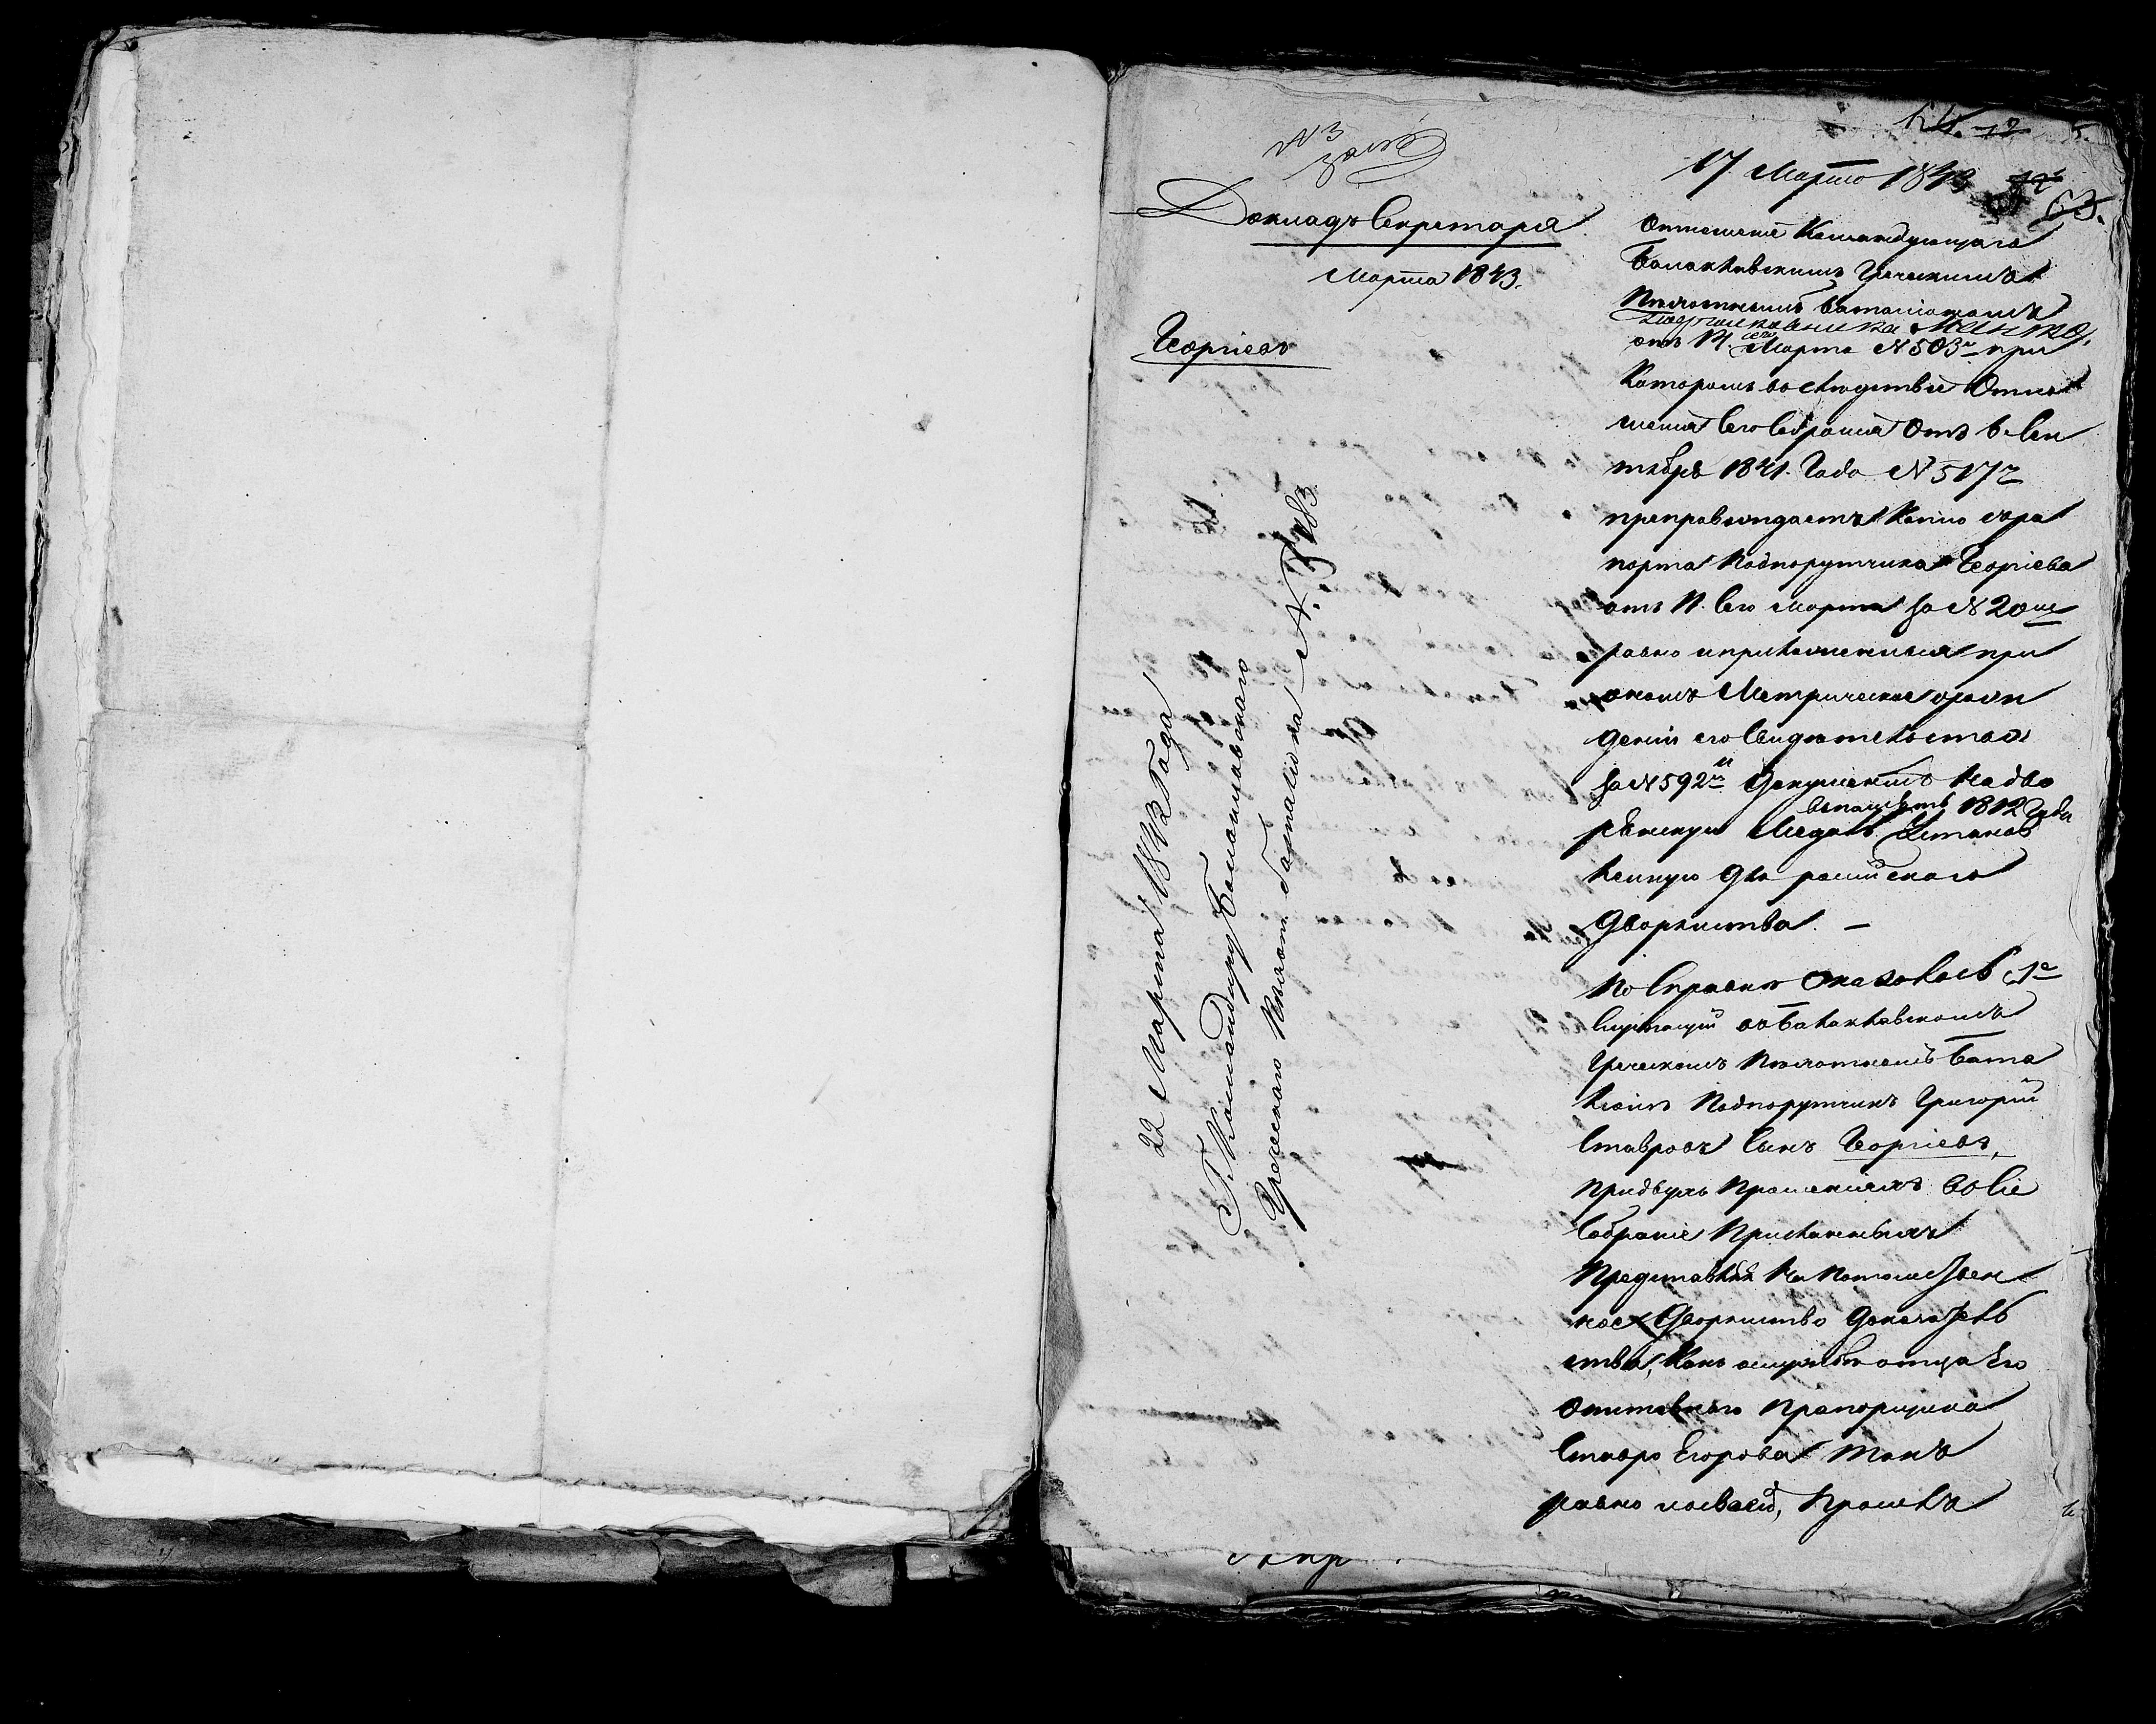 № 3
17. Марта 1843
63.
Докладъ Секретаря
Марта 1843.
Георгіевъ
Отношеніе Командующаго
Балаклавскимъ Греческимъ
Пехотнымъ баталіономъ
отъ 14. сего Марта № 503 при
Которомъ во следствіе Отно
шенія Сего Собранія Отъ 6. Сен
тября 1841. Года № 5172
препровождаетъ Копію съ ра
порта Подпорутчика Георгіева
отъ 11. Сего марта за № 20
равно и приложенныя при
ономъ Метрическое о рож
деніи его Свидетельство
за № 592 Документъ На дво
рянскую въ память 1812 Года
Медаль Установ
ленную Для россійскаго
Дворянства. —
По Справке Оказалось 1е
Служащій въ Балаклавскомъ
Греческомъ Пехотномъ Бата
ліоне Подпорутчикъ Григорій
Ставровъ Сынъ Георгіевъ,
При двухъ Прошеніяхъ Въ Сіе
Собраніе Присланныхъ
Представляя На Потомствен
ное Дворянство Доказатель
ства, Какъ о службе отца Его
Отставнаго Прапорщика
Ставро Егорова такъ
равно и о своей, Просилъ
22 Марта 1843 Года
Г. Командиру Балаклавскаго
Греческаго Пехотн. баталіона № 483